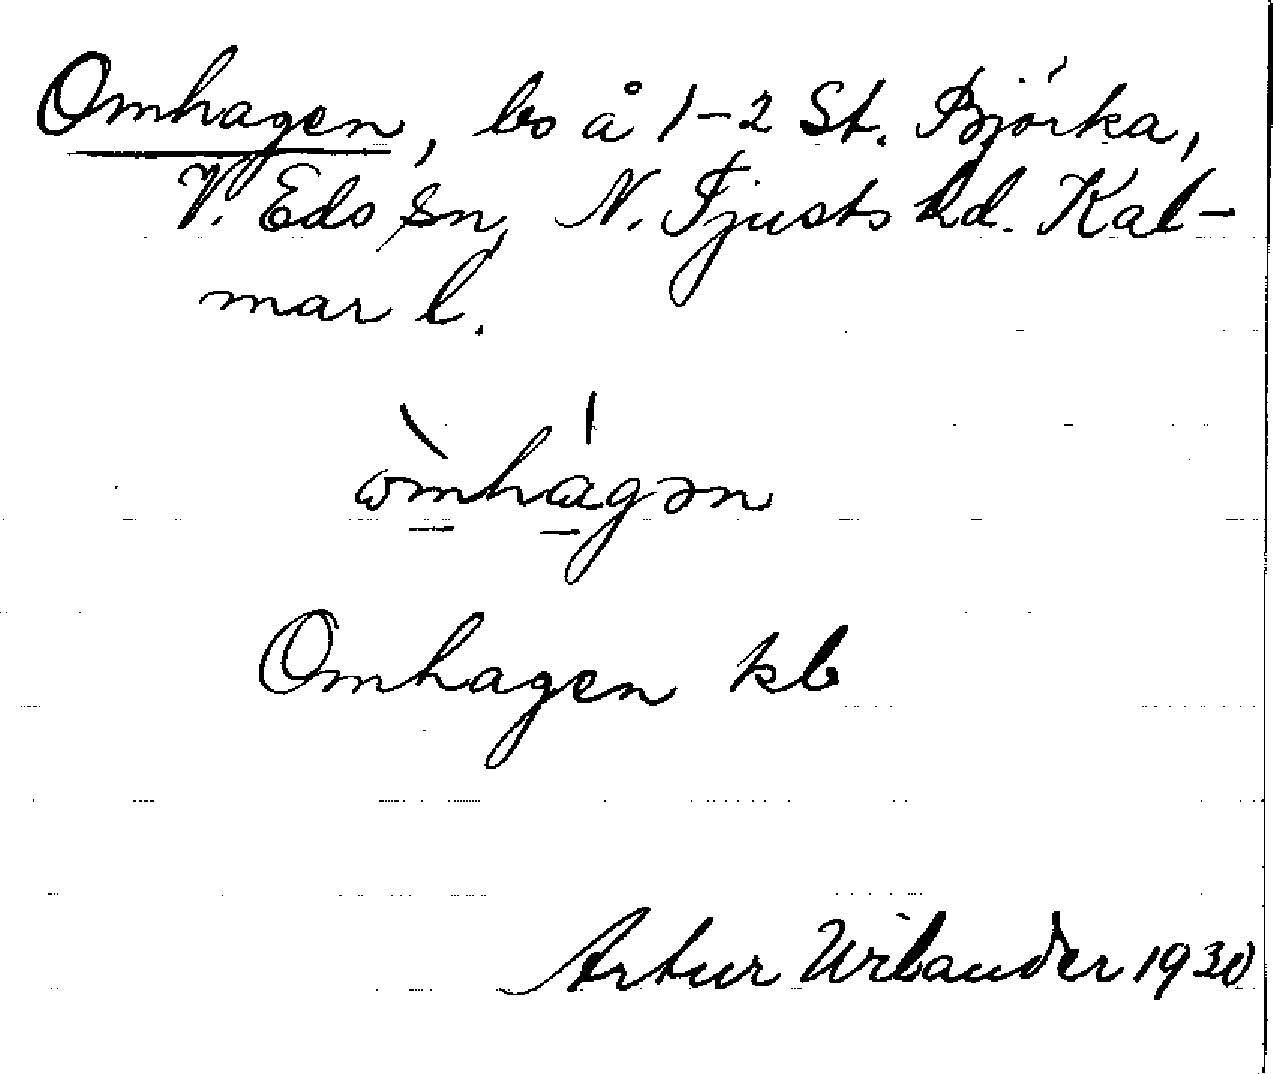 Omhagen, bs å 1-2 St. Björka,
V. Eds sn, N. Tjusts hd. Kal-
mar l.
òmhágən
Omhagen kb
Artur Wilander 1930